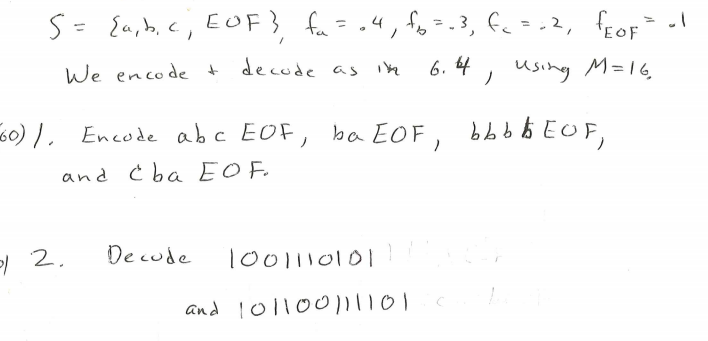 S = {a, b, c, EOF}, fa = .4, fb = .3, fc = .2, fEOF = .1
We encode + decode as in 6.4, using M=16.
60) 1. Encode abc EOF, ba EOF, bbbb EOF,
and cba EOF.
2. Decode 1001110101
and 101100111101